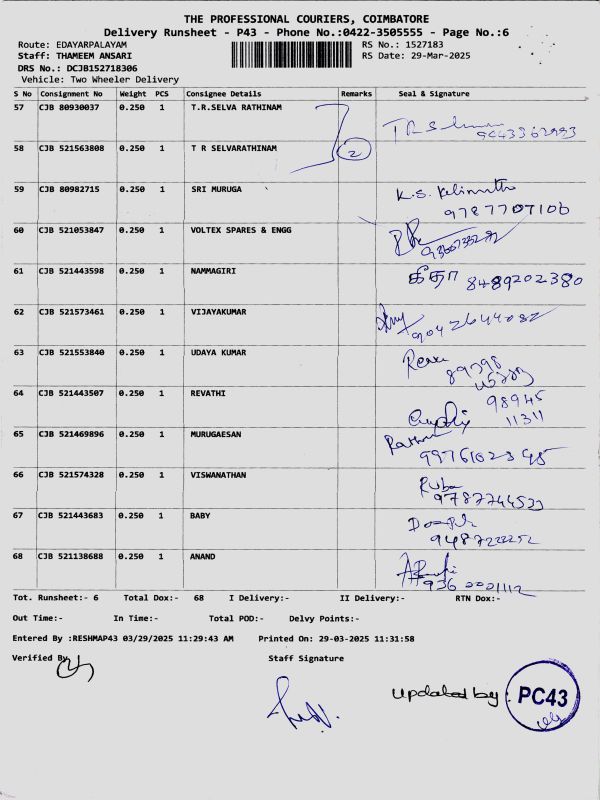 THE PROFESSIONAL COURIERS, COIMBATORE
Delivery Runsheet - P43 - Phone No.:0422-3505555 - Page No.:6
Route: EDAYARPALAYAM RS No.: 1527183
Staff: THAMEEM ANSARI RS Date: 29-Mar-2025
DRS No.: DCJB152718306
Vehicle: Two Wheeler Delivery
S No Consignment No Weight PCS Consignee Details Remarks Seal & Signature
57 CJB 80930037 0.250 1 T.R.SELVA RATHINAM
58 CJB 521563808 0.250 1 T R SELVARATHINAM 2
59 CJB 80982715 0.250 1 SRI MURUGA K.S.
9787707106
60 CJB 521053847 0.250 1 VOLTEX SPARES & ENGG
61 CJB 521443598 0.250 1 NAMMAGIRI கீதா 8489202380
62 CJB 521573461 0.250 1 VIJAYAKUMAR 9042644082
63 CJB 521553840 0.250 1 UDAYA KUMAR
89398
64 CJB 521443507 0.250 1 REVATHI 98945
11311
65 CJB 521469896 0.250 1 MURUGAESAN
66 CJB 521574328 0.250 1 VISWANATHAN Ruba
67 CJB 521443683 0.250 1 BABY
68 CJB 521138688 0.250 1 ANAND
Tot. Runsheet:- 6 Total Dox:- 68 I Delivery:- II Delivery:- RTN Dox:-
Out Time:- In Time:- Total POD:- Delvy Points:-
Entered By :RESHMAP43 03/29/2025 11:29:43 AM Printed On: 29-03-2025 11:31:58
Verified By Staff Signature
Updated by: PC43